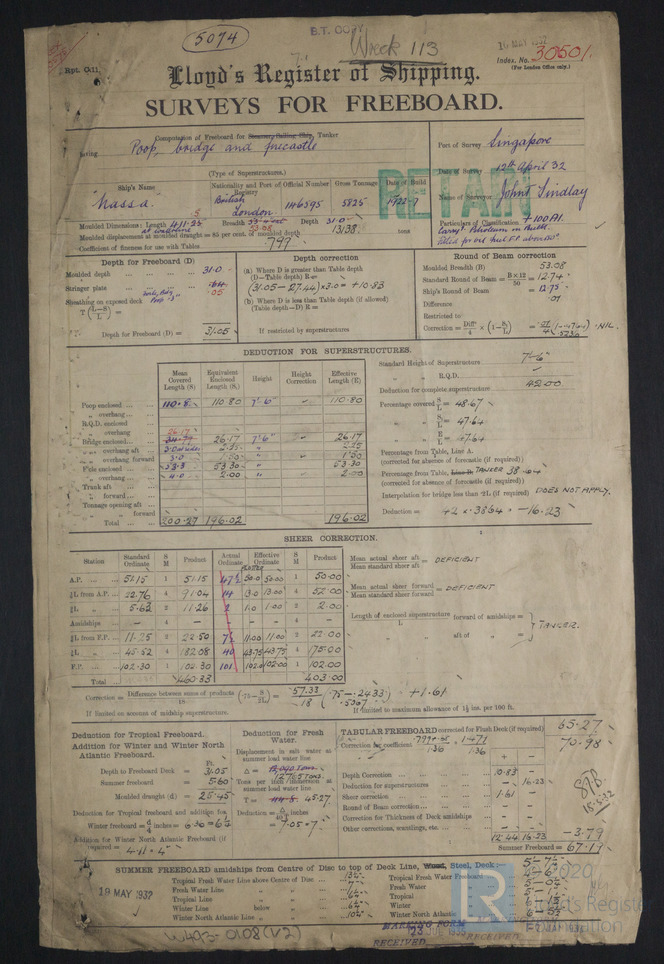 5074
B.T. COPY
Wreck 113
Index. No. 30501.
(For London Office only.)
Rpt. C.11.
Lloyd's Register of Shipping.
SURVEYS FOR FREEBOARD.
Computation of Freeboard for Steamer, Sailing Ship, Tanker
having Poop, bridge and forecastle
(Type of Superstructures.)
Port of Survey Singapore
Date of Survey 12th April 32
Name of Surveyor John Lindlay
Particulars of Classification +100A1.
Carryg Petroleum in Bulk.
fitted for oil fuel F.P. above 150°
RETAIN
Ship's Name
Nationality and Port of Registry
Official Number
Gross Tonnage
Date of Build
"Nassa"
British
London
146595
5825
1922-9
Moulded Dimensions: Length 411.25 Breadth 53.08 Depth 31.0
Moulded displacement at moulded draught = 85 per cent. of moulded depth 13138. tons
Coefficient of fineness for use with Tables .799
Depth for Freeboard (D)
Moulded depth 31.0
Stringer plate .05
Sheathing on exposed deck
T (L-S/L) =
Depth for Freeboard (D) = 31.05
Depth correction
(a) Where D is greater than Table depth
(D—Table depth) R=
(31.05-27.44) × 3.0 = +10.83
(b) Where D is less than Table depth (if allowed)
(Table depth—D) R =
If restricted by superstructures
Round of Beam correction
Moulded Breadth (B) 53.08
Standard Round of Beam = B×12/50 = 12.74
Ship's Round of Beam = 12.75
Difference .01
Restricted to
Correction = Diff/4 × (1-S/L) = NIL.
DEDUCTION FOR SUPERSTRUCTURES.
Mean Covered Length (S)
Equivalent Enclosed Length (S₁)
Height
Height Correction
Effective Length (E)
Poop enclosed 110.8 110.80 7'-6" 110.80
„ overhang
R.Q.D. enclosed
„ overhang
Bridge enclosed 26.17 26.17 7'-6" 26.17
„ overhang aft
„ overhang forward 3.0 1.50 1.50
F'cle enclosed 53.3 53.30 53.30
„ overhang 4.0 2.00 2.00
Trunk aft
„ forward
Tonnage opening aft
„ „ forward
Total 200.27 196.02 196.02
Standard Height of Superstructure 7'-6"
„ „ R.Q.D.
Deduction for complete superstructure 42.00
Percentage covered S/L = 48.67
„ S₁/L = 47.64
„ E/L = 47.64
Percentage from Table, Line A.
(corrected for absence of forecastle (if required))
Percentage from Table, Line B. TANKER 38.64
(corrected for absence of forecastle (if required))
Interpolation for bridge less than ·2L (if required) DOES NOT APPLY.
Deduction = 42 × .3864 = -16.23
SHEER CORRECTION.
Station
Standard Ordinate
S M
Product
Actual Ordinate
Effective Ordinate
S M
Product
A.P. 51.15 1 51.15 47½ 50.0 50.00 1 50.00
⅙L from A.P. 22.76 4 91.04 14 13.0 13.00 4 52.00
⅓L „ 5.63 2 11.26 2 1.0 1.00 2 2.00
Amidships - 4 - - - - 4 -
⅓L from F.P. 11.25 2 22.50 7½ 11.00 11.00 2 22.00
⅙L „ 45.52 4 182.08 40 43.75 43.75 4 175.00
F.P. 102.30 1 102.30 101 102.0 102.00 1 102.00
Total 460.33 403.00
Mean actual sheer aft / Mean standard sheer aft = DEFICIENT
Mean actual sheer forward / Mean standard sheer forward = DEFICIENT
Length of enclosed superstructure / L forward of amidships =
„ „ aft of „ =
TANKER.
Correction = Difference between sums of products/18 (·75-S/2L) = 57.33/18 (.75-.2433) .5067 +1.61
If limited on account of midship superstructure.
If limited to maximum allowance of 1½ ins. per 100 ft.
Deduction for Tropical Freeboard.
Addition for Winter and Winter North Atlantic Freeboard.
Ft.
Depth to Freeboard Deck = 31.05
Summer freeboard = 5.60
Moulded draught (d) = 25.45
Deduction for Tropical freeboard and addition for
Winter freeboard = d/4 inches = 6.36 = 6½
Addition for Winter North Atlantic Freeboard (if required) = 4.11 = 4"
Deduction for Fresh Water.
Displacement in salt water at summer load water line
Δ = 12765 tons.
Tons per inch immersion at summer load water line
T = 45.27
Deduction = Δ/40T inches
= 7.05 = 7"
TABULAR FREEBOARD corrected for Flush Deck (if required) 65.27
Correction for coefficient 1.471/1.36 70.98
+ -
Depth Correction 10.83 -
Deduction for superstructures - 16.23
Sheer correction 1.61 -
Round of Beam correction - -
Correction for Thickness of Deck amidships - -
Other corrections, scantlings, etc. - -
12.44 16.23 -3.79
Summer Freeboard = 67.19
15.5.32
SUMMER FREEBOARD amidships from Centre of Disc to top of Deck Line, Wood, Steel, Deck:—
Tropical Fresh Water Line above Centre of Disc
Fresh Water Line „ „
Tropical Line „ „
Winter Line below „
Winter North Atlantic Line „ „
Tropical Fresh Water Freeboard
Fresh Water „
Tropical „
Winter „
Winter North Atlantic „
19 MAY 1932
RECEIVED
RECEIVED
W403-0108 (V2)
LR
© 2020
Lloyd's Register
Foundation